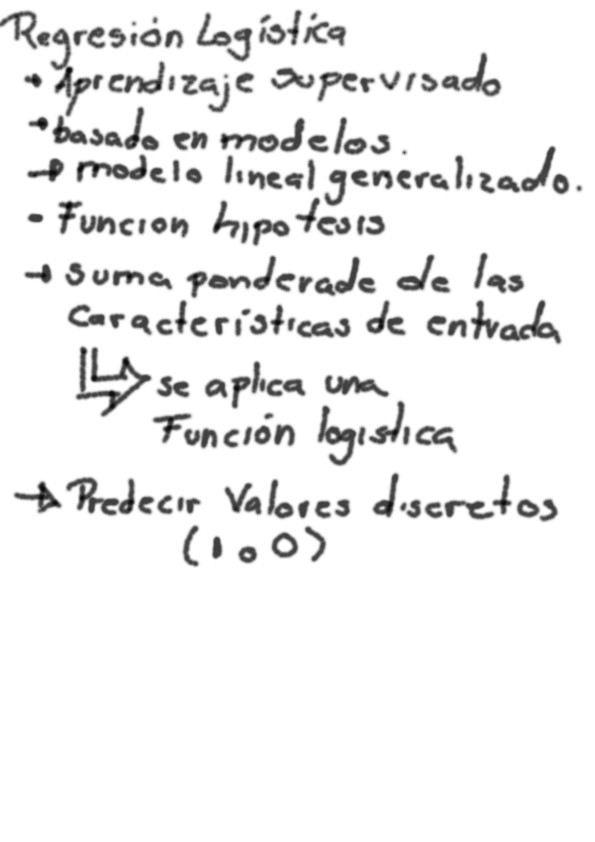 Regresión Logística
→ Aprendizaje supervisado
→ basado en modelos.
→ modelo lineal generalizado.
- Funcion hipotesis
→ suma ponderade de las
características de entrada
se aplica una
Función logistica
→ Predecir Valores discretos
(1 o 0)